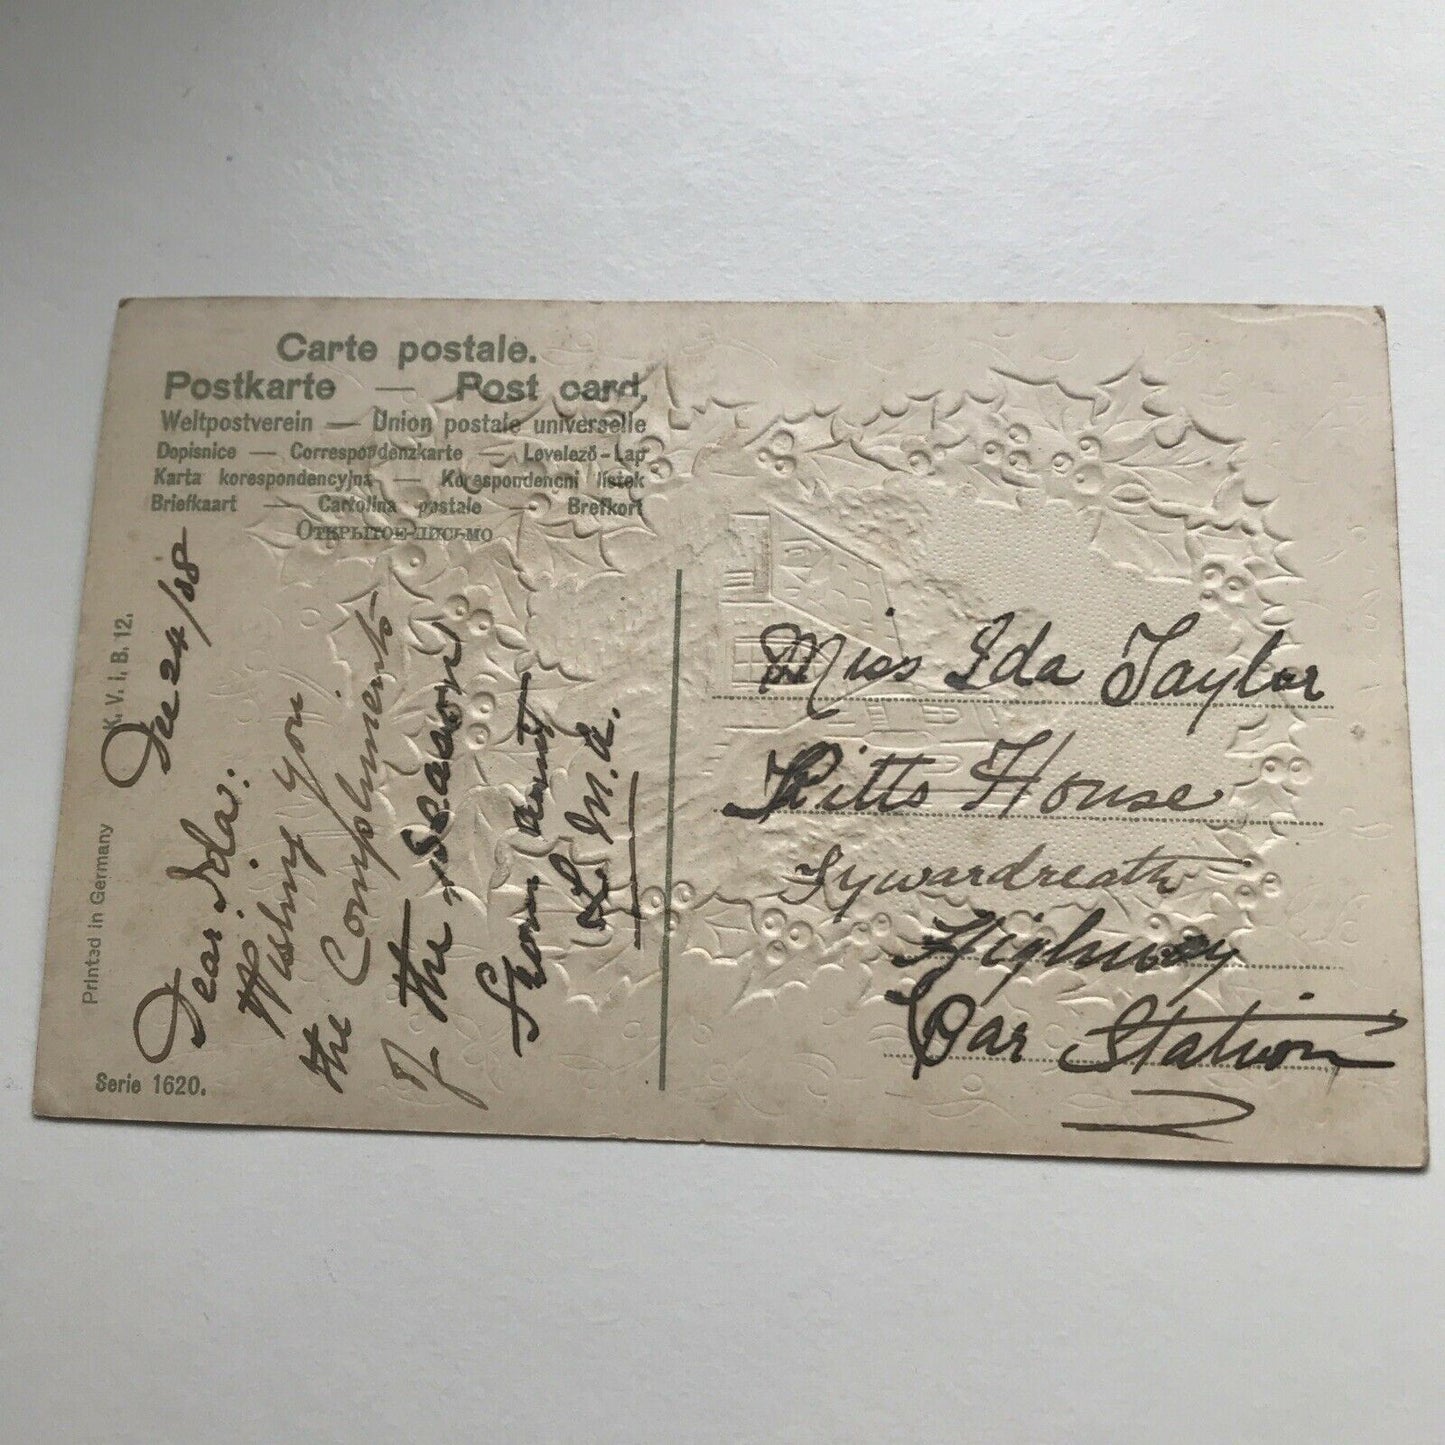 Carte postale.
Postkarte — Post card.
Weltpostverein — Union postale universelle
Dopisnice — Correspondenzkarte — Levelező-Lap
Karta korespondencyjna — Korespondencni lístek
Briefkaart — Cartolina postale — Brefkort
Открытое-письмо
K. V. I. B. 12.
Printed in Germany
Serie 1620.
Dec 24/08
Dear Ida:
Wishing you
the Compliments
of the season
from aunt
L. M. A.
Miss Ida Taylor
Pitts House
Tywardreath
Highway
Par Station